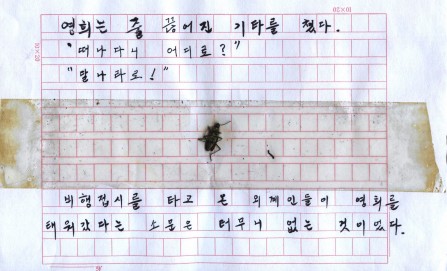 영희는 줄 끊어진 기타를 쳤다.
"떠나다니 어디로?"
"달나라로!"
비행접시를 타고 온 외계인들이 영희를
태워갔다는 소문은 터무니 없는 것이었다.